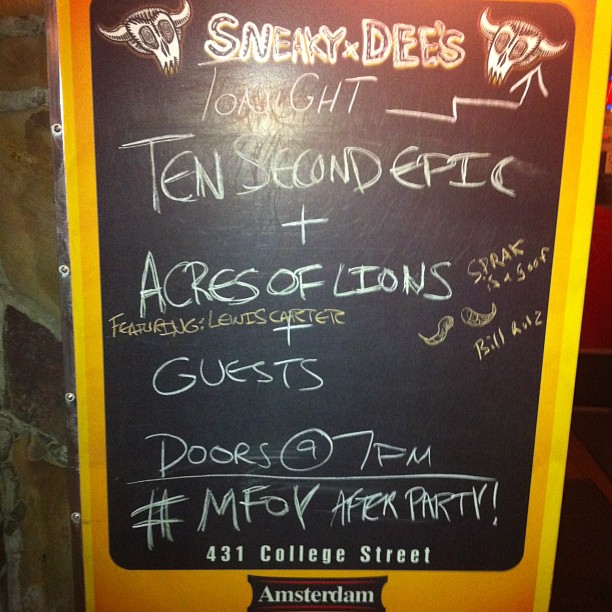 SNEAKY x DEE'S
TONIGHT
TEN SECOND EPIC
+
ACRES OF LIONS
FEATURING: LEWIS CARTER
+
GUESTS
DOORS @ 7PM
# MFOV AFTER PARTY!
431 College Street
Amsterdam
SPRAK
is a
Bill